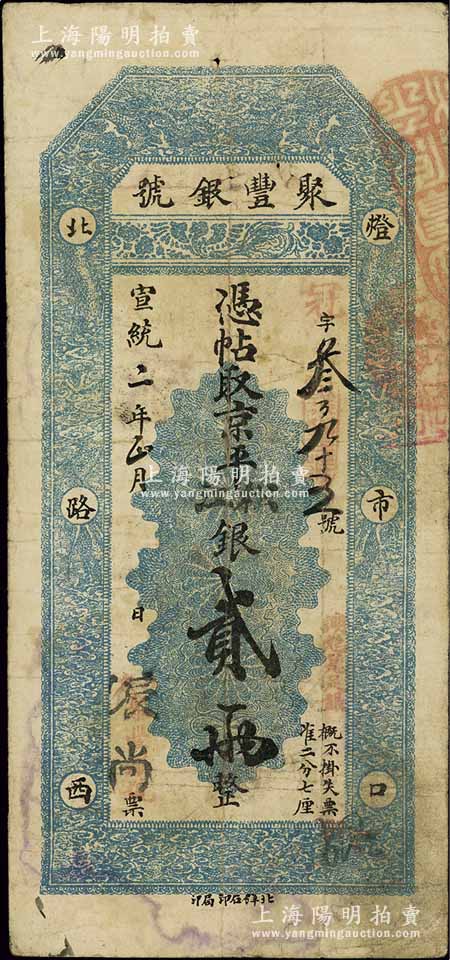 上海陽明拍賣
www.yangmingauction.com
聚豐銀號
燈市口
北路西
字叁百九十五號
憑帖取京平足銀貳兩整
宣統二年正月 日 票
概不掛失票
准二分七厘
上海陽明拍賣
www.yangmingauction.com
上海陽明拍賣
www.yangmingauction.com